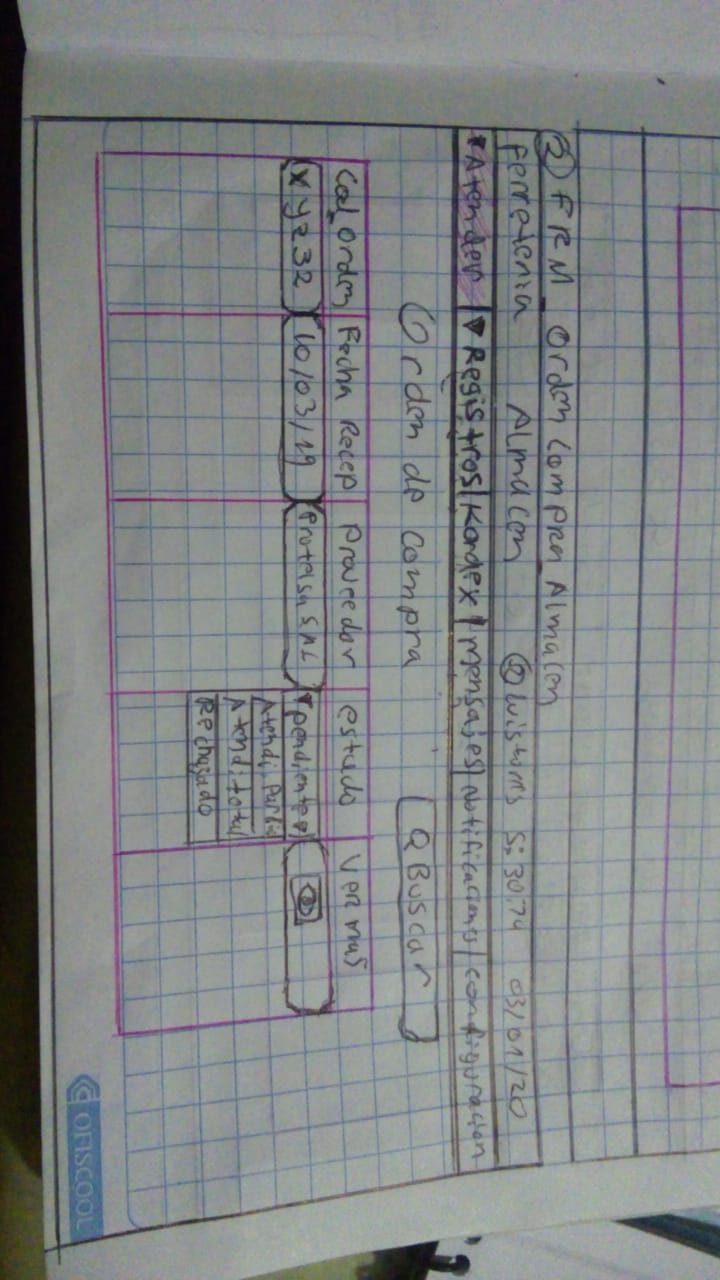 ② FRM_Orden Compra_Almacen
Ferreteria Almacen Luis toms 5:30:74 03/01/20
▼Atender | ▼Registros | Kardex | Mensajes | Notificaciones | configuracion
Orden de Compra Buscar
Cod_Orden Fecha Recep Proveedor estado Ver mas
xyz32 10/03/19 Protelsa S.A.C ▼pendiente
Atendi. Parcial
Atendi. total
Rechazado
OFISCOOL